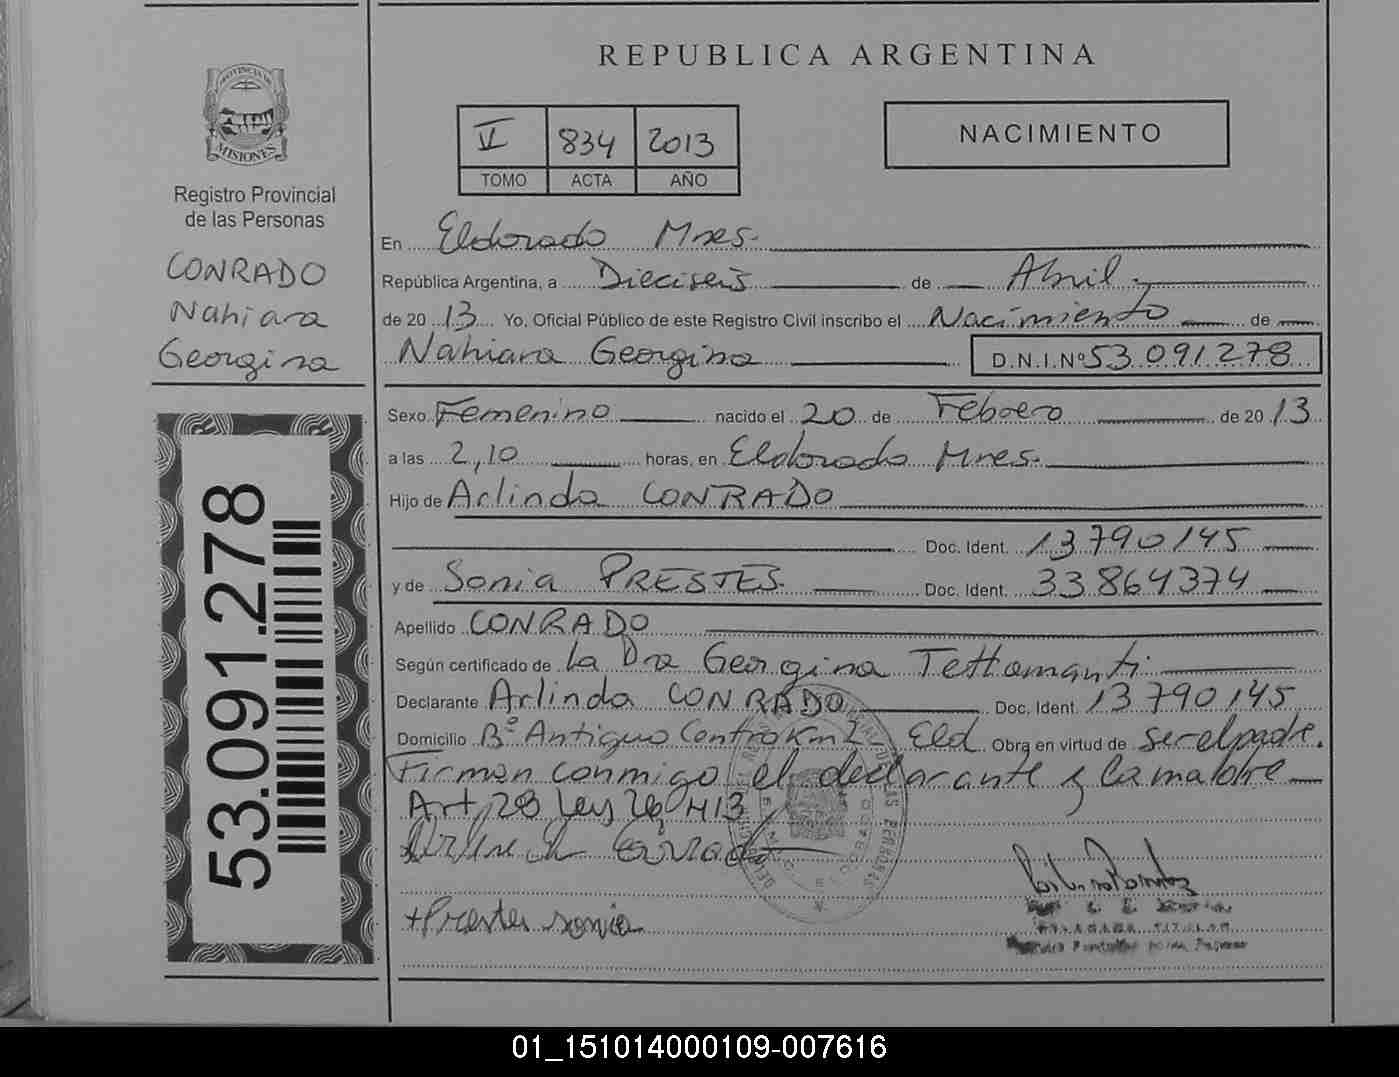 REPUBLICA ARGENTINA
PROVINCIA DE
MISIONES
Registro Provincial
de las Personas
CONRADO
Nahiara
Georgina
53.091.278
VI 834 2013
TOMO ACTA AÑO
NACIMIENTO
En Eldorado Mnes.
República Argentina, a Dieciseis de Abril
de 20 13 Yo, Oficial Público de este Registro Civil inscribo el Nacimiento de
Nahiara Georgina D.N.I.Nº 53.091.278
Sexo Femenino nacido el 20 de Febrero de 20 13
a las 2,10 horas, en Eldorado Mnes.
Hijo de Arlindo CONRADO
Doc. Ident. 13790145
y de Sonia PRESTES Doc. Ident. 33864374
Apellido CONRADO
Según certificado de La Dra Georgina Tettamanti
Declarante Arlindo CONRADO Doc. Ident. 13790145
Domicilio Bº Antiguo Contro Km 2 Eld Obra en virtud de ser el padre.
Firman conmigo el declarante y la madre
Art 28 Ley 26,413
Prestes sonia
01_151014000109-007616